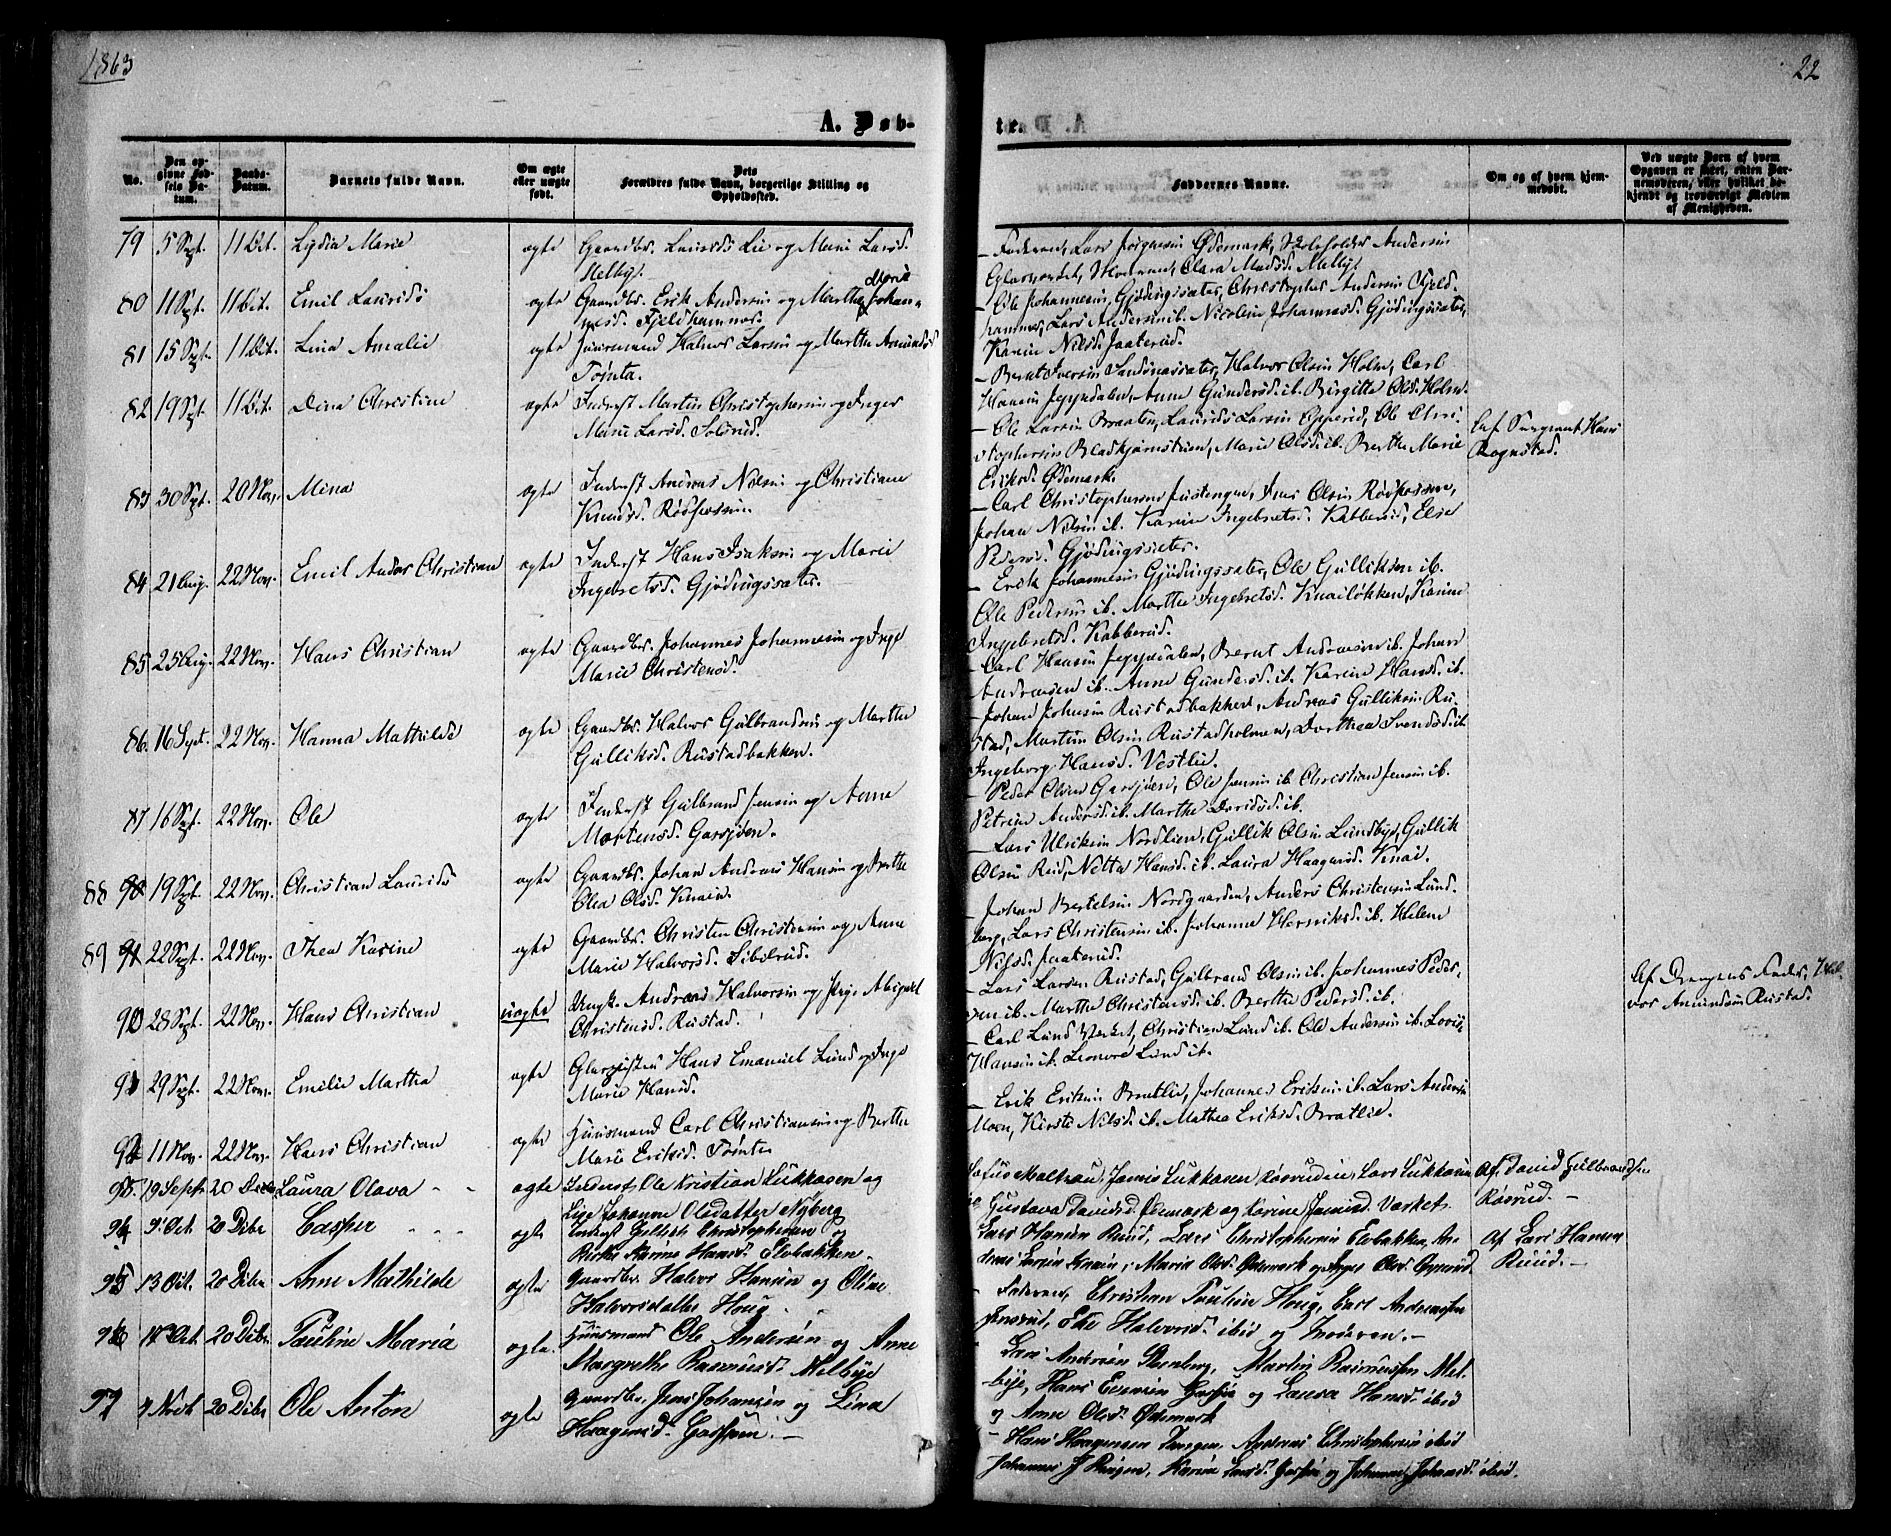 1863
22
A. Døb-
te.
No.
Den op-
givne Fød-
sels Da-
tum.
Daabs-
Datum.
Barnets fulde Navn.
Om ægte
eller uægte
født.
Dets
Forældres fulde Navn, borgerlige Stilling og
Opholdssted.
Faddernes Navne.
Om og af hvem hjem-
medøbt.
Ved uægte Børn af hvem
Opgaven er skeet, enten Bar-
nemoderen, eller hvilket be-
kjendt og troværdigt Medlem
af Menigheden.
79 5 Sept. 11 Oct. Lydia Marie ægte Gaardbr. Laurids Lie og Mari Larsd.
Melby.
80 11 Sept. 11 Oct. Emil Laurids ægte Gaardbr. Erik Andersen og Marthe Maria Johan-
nesd. Fjeldhammer.
81 15 Sept. 11 Oct. Lina Amalie ægte Huusmand Halvor Larsen og Marthe Amundsd.
Tomta.
82 19 Sept. 11 Oct. Dina Christine ægte Inderst Martin Christophersen og Inger
Marie Larsd. Solerud.
83 30 Sept. 20 Nov. Mina ægte Inderst Andreas Nilsen og Christiane
Knudsd. Røsfossen.
84 21 Aug. 22 Nov. Emil Anders Christian ægte Inderst Hans Isaksen og Marie
Ingebretsd. Gjødingssæter.
85 25 Aug. 22 Nov. Hans Christian ægte Gaardbr. Johannes Johannesen og Inge
Marie Christensd.
86. 16 Sept. 22 Nov. Hanna Mathilde ægte Gaardbr. Halvor Gulbrandsen og Marthe
Gulliksd. Rustadbakken.
87 16 Sept. 22 Nov. Ole ægte Inderst Gulbrand Jensen og Anne
Mortensd. Garsjøen.
88 19 Sept. 22 Nov. Christian Laurids ægte Gaardbr. Johan Andreas Hansen og Berthe
Olea Olsd. Knain.
89 22 Sept. 22 Nov. Thea Karine ægte Gaardbr. Christen Christensen og Anne
Marie Halvorsd. Sibilrud.
90 28 Sept. 22 Nov. Hans Christian uægte Ungk. Andreas Halvorsen og Pige Abigael
Christensd. Rustad.
91 29 Sept. 22 Nov. Emilie Martha ægte Glaspusten Hans Emanuel Lund og Inge
Marie Hansd.
92 11 Nov. 22 Nov. Hans Christian ægte Huusmand Carl Christiansen og Berthe
Marie Eriksd. Tomta
93. 19 Sept. 20 Decbr Laura Olava ægte Inderst Ole Kristian Lukkasen og
Lise Johanne Olsdatter Nyberg
94 9' Oct. 20 Dcbr Casper ægte Inderst Gullich Christophersen og
Birthe Karine Hansd. Elvbakken.
95 13 Oct. 20 Dcbr Anne Mathilde ægte Gaardbr. Halvor Hansen og Oline
Halvorsdatter Houg.
96 14 Oct. 20 Dcbr Pauline Maria ægte. Huusmand Ole Andersen og Anne
Margrethe Rasmusd. Melbye
97 4 Novbr 20 Dcbr Ole Anton ægte Gaardbr. Jens Johansen og Lina
Haagensd. Garsjøen. —
— Faderen, Lars Jørgensen Ødemark, Skoleholder Andersen
Glasværket, Moderen, Clara Madsd. Melby.
— Ole Johannesen, Gjødingssæter, Christopher Andersen Fjeld-
hammer, Lars Andersen ib. Nicoline Johannesd. Gjødingssæter,
Karen Nilsd. Jaaterud.
— Bernt Iversen Sandnæssæter, Halvor Olsen Holm, Carl
Hansen Jeppedalen, Anne Gundersd. ib. Birgitte Olsd. Holm.
— Ole Larsen Braaten, Laurids Larsen Opperud, Ole Chri-
stophersen Bladkjærnstuen, Marie Olsd. ib. Berthe Marie
Eriksd. Ødemark.
— Carl Christophersen Justengen, Jens Olsen Røsfossen,
Johan Nilsen ib. Karen Ingebretsd. Kabberud, Else
Pedersd. Gjødingssæter.
— Erik Johannesen Gjødingssæter, Ole Gulliksen ib.
Ole Pedersen ib. Marthe Ingebretsd. Knailøkken, Karine
Ingebretsd. Kabberud.
— Carl Hansen Jeppedalen, Bernt Andreasen ib. Johan
Andreasen ib. Anne Gundersd. ib. Karen Hansd. ib.
— Johan Johnsen Rustadbakken, Andreas Gulliksen Ru-
stad, Martin Olsen Rustadholmen, Dorthea Svendsd. ib.
Ingeborg Hansd. Vestlie.
— Peder Olsen Garsjøen, Ole Jensen ib. Christian Jensen ib.
Petrine Andersd. ib. Marthe Davidsd. ib.
— Lars Ulriksen Nordlien, Gullik Olsen Lundby, Gullik
Olsen Reid, Netta Hansd. ib. Laura Haagensd. Knai.
— Johan Bertelsen Nordgaarden, Anders Christensen Lund-
berg, Lars Christensen ib. Johanne Henriksd. ib. Helene
Nilsd. Jaaterud.
— Lars Larsen Rustad, Gulbrand Olsen ib. Johannes Peder-
sen ib. Marthe Christensd. ib. Berthe Pedersd. ib.
— Carl Lund Værket, Christian Lund ib. Ole Andersen ib. Lovise
Hansen ib. Leonore Lund ib.
— Erik Eriksen Bratlie, Johannes Eriksen ib. Lars Andersen
Moen, Kirsti Nilsd. ib. Mathea Eriksd. Bratlie.
Lukkasen Røsrudeie, Lars Lukkasen
Gustava Davidsd. Ødemark og Karine Jensd. Værket.
Lars Hansen Ruud, Lars Christophersen Elvbakken, An-
dreas Larsen Knain, Maria Olsd. Ødemark og Inger Olsd.
Faderen, Christian Paulsen Houg, Carl Andreassen
Halvorsd. ibid og Moderen. —
Lars Andersen Stenberg, Martin Rasmussen Mel-
bye, Hans Garsjøe og Laura Hansd. ibid
og Anne Olsd. Ødemark
— Hans Haagensen Andreas Christophersen ibid
Johannes Karine Larsd. Garsjøe og Johanne Johansd. ibid.
af Sergeant Hans
Rognstad.
Af David Gulbrandsen
Røsrud. —
Af Lars Hansen
Ruud. —
Af Drengens Fader, Hal-
vor Amundsen Rustad.